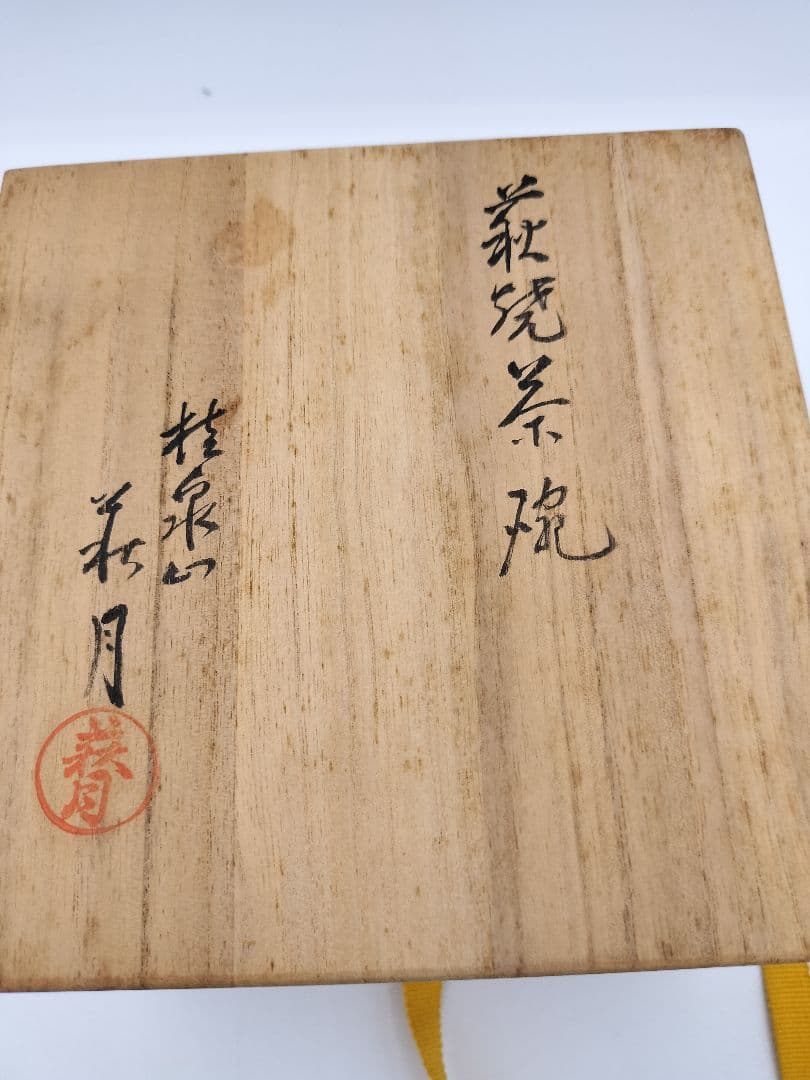 萩焼茶碗
桂泉山
萩月
萩月